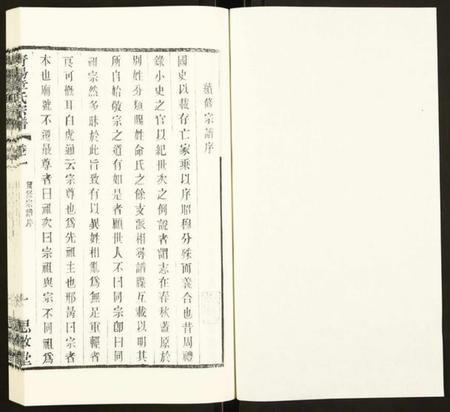 續修宗譜序
國史以載存亡家乘以序昭穆分殊而義合也昔周禮
錄小史之官以紀世次之倒說者謂志在春秋蓋原於
別姓分類賜姓命氏之餘支派相尋譜牒互載以明其
所自始敬宗之道有如是者顧世人不曰同宗卽曰同
祖宗然多昧於此旨致有以異姓相亂為無足重輕者
良可慨耳白虎通云宗尊也為先祖主也邢昺曰宗者
本也廟號不遷最尊者曰祖次曰宗祖與宗不同祖為
氏宗譜
卷一
續修宗譜序
一